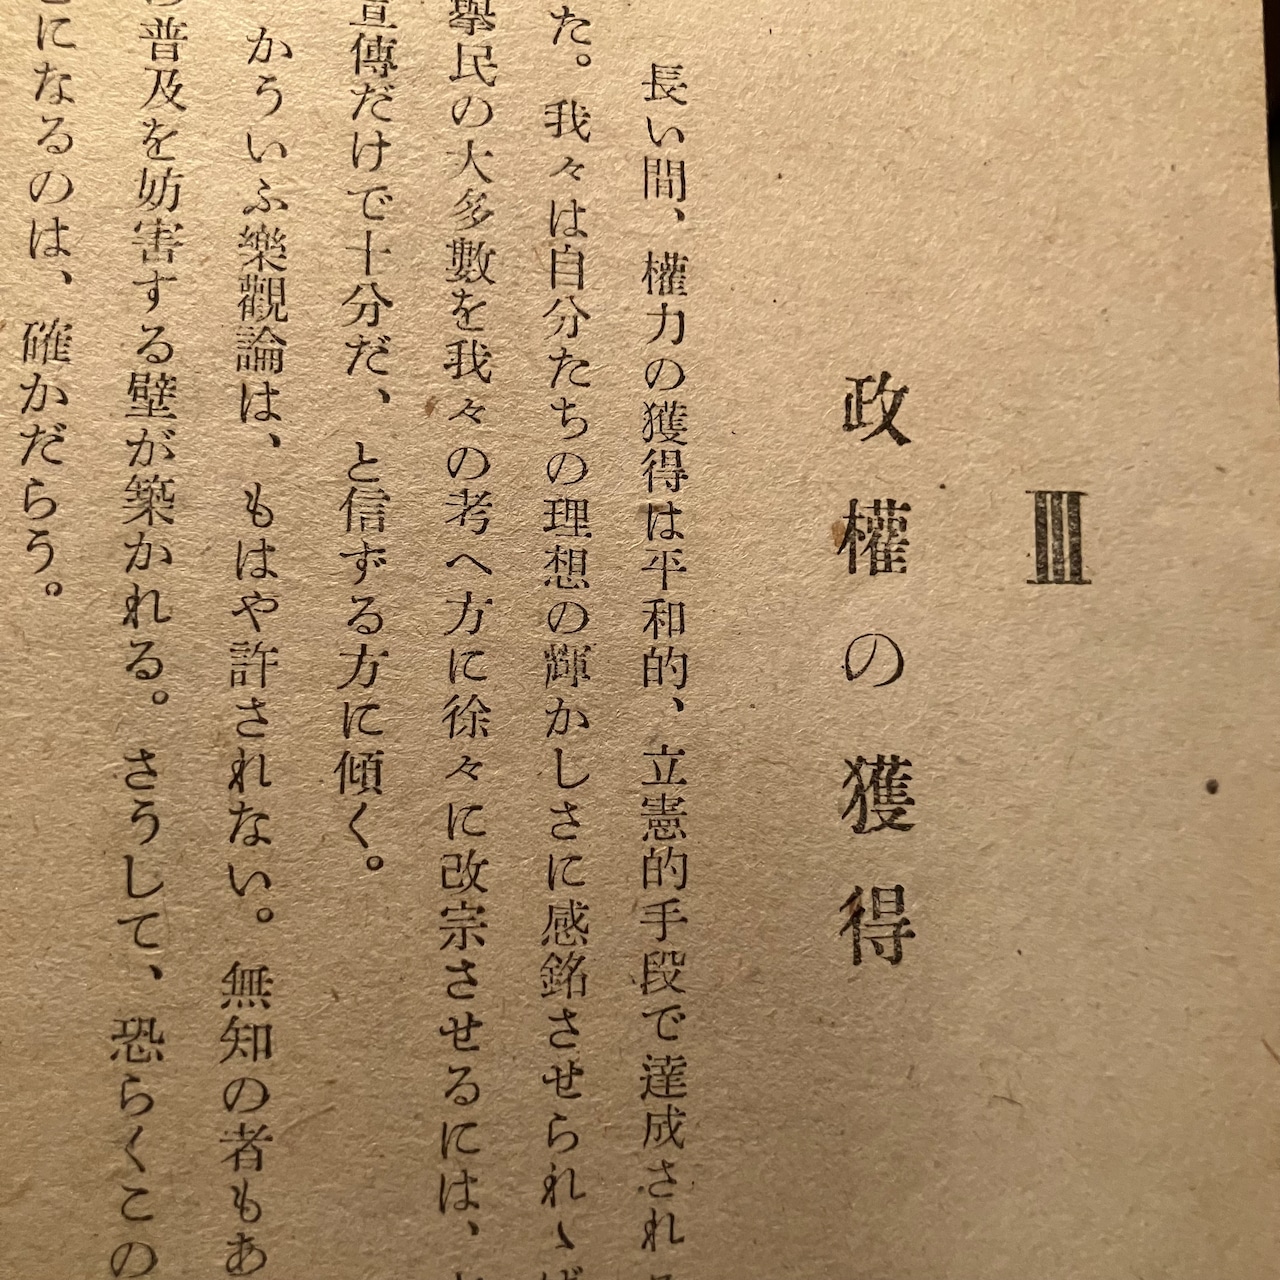 Ⅲ
政權の獲得
長い間、權力の獲得は平和的、立憲的手段で達成され
た。我々は自分たちの理想の輝かしさに感銘させられゝば
擧民の大多數を我々の考へ方に徐々に改宗させるには、
宣傳だけで十分だ、と信ずる方に傾く。
かういふ樂觀論は、もはや許されない。無知の者もあ
普及を妨害する壁が築かれる。さうして、恐らくこの
になるのは、確かだらう。